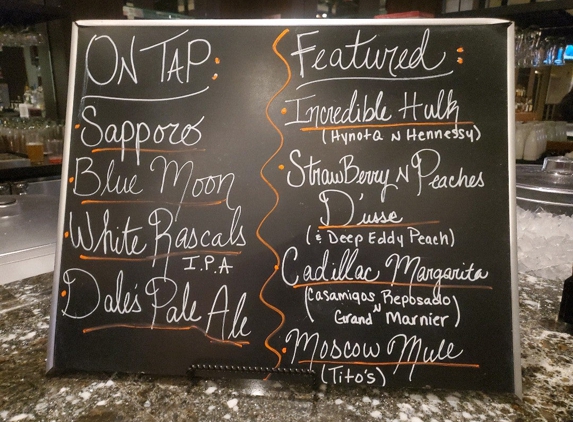 ON TAP:
Sapporo
Blue Moon
White Rascals
I.P.A
Dale's Pale Ale
Featured:
Incredible Hulk
(Hynotq N Hennessy)
StrawBerry N Peaches
D'usse
(& Deep Eddy Peach)
Cadillac Margarita
(Casamigos Reposado
N
Grand Marnier)
Moscow Mule
(Tito's)